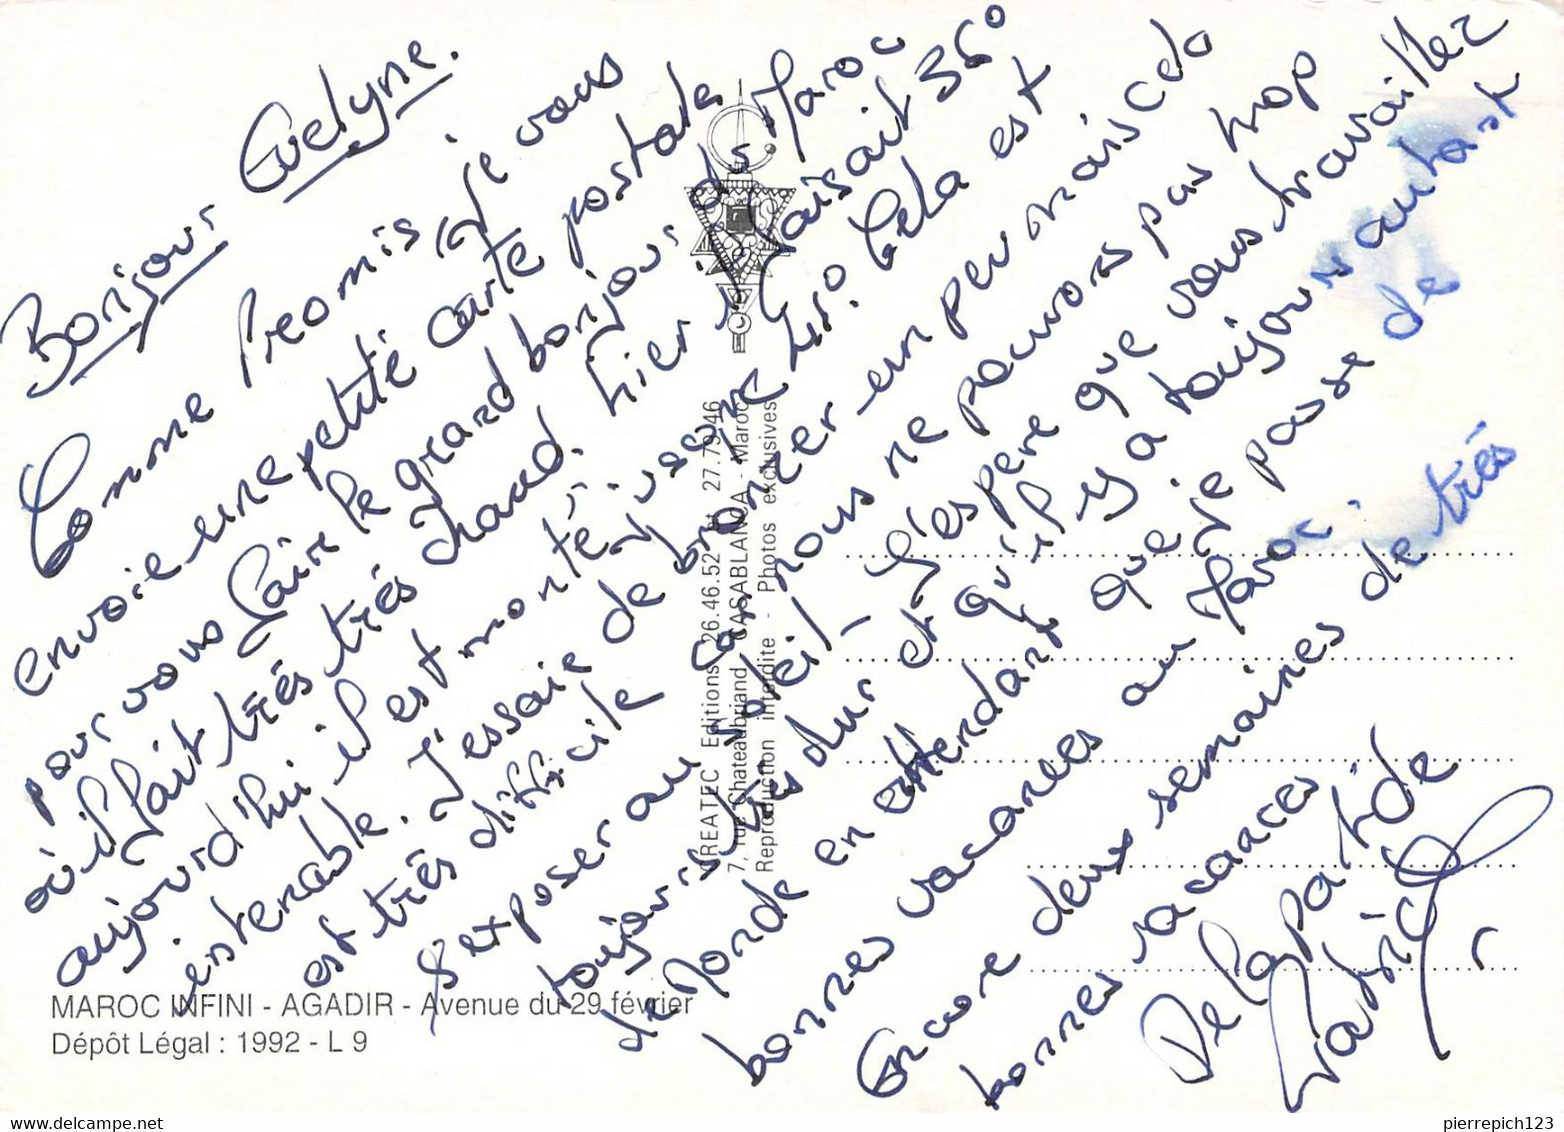 Bonjour Evelyne.
Comme Promis je vous
envoie une petite carte postale
pour vous faire le grand bonjour du Maroc
où il fait très très très chaud. hier il faisait 36°
aujourd'hui il est monté jusque 45°. Cela est
intenable. J'essaie de bronzer un peu mais cela
est très difficile car nous ne pouvons pas trop
s'exposer au soleil - J'espère que vous travaillez
toujours très dur et qu'il y a toujours autant
de Monde en attendant que je passe de
bonnes vacances au Maroc.
Encore deux semaines de très
bonnes vacances
De la part de
Patrick
CREATEC Editions 26.46.52 27.79.46
7, rue Chateaubriand CASABLANCA - Maroc
Reproduction interdite - Photos exclusives
MAROC INFINI - AGADIR - Avenue du 29 février
Dépôt Légal : 1992 - L 9
pierrepich123